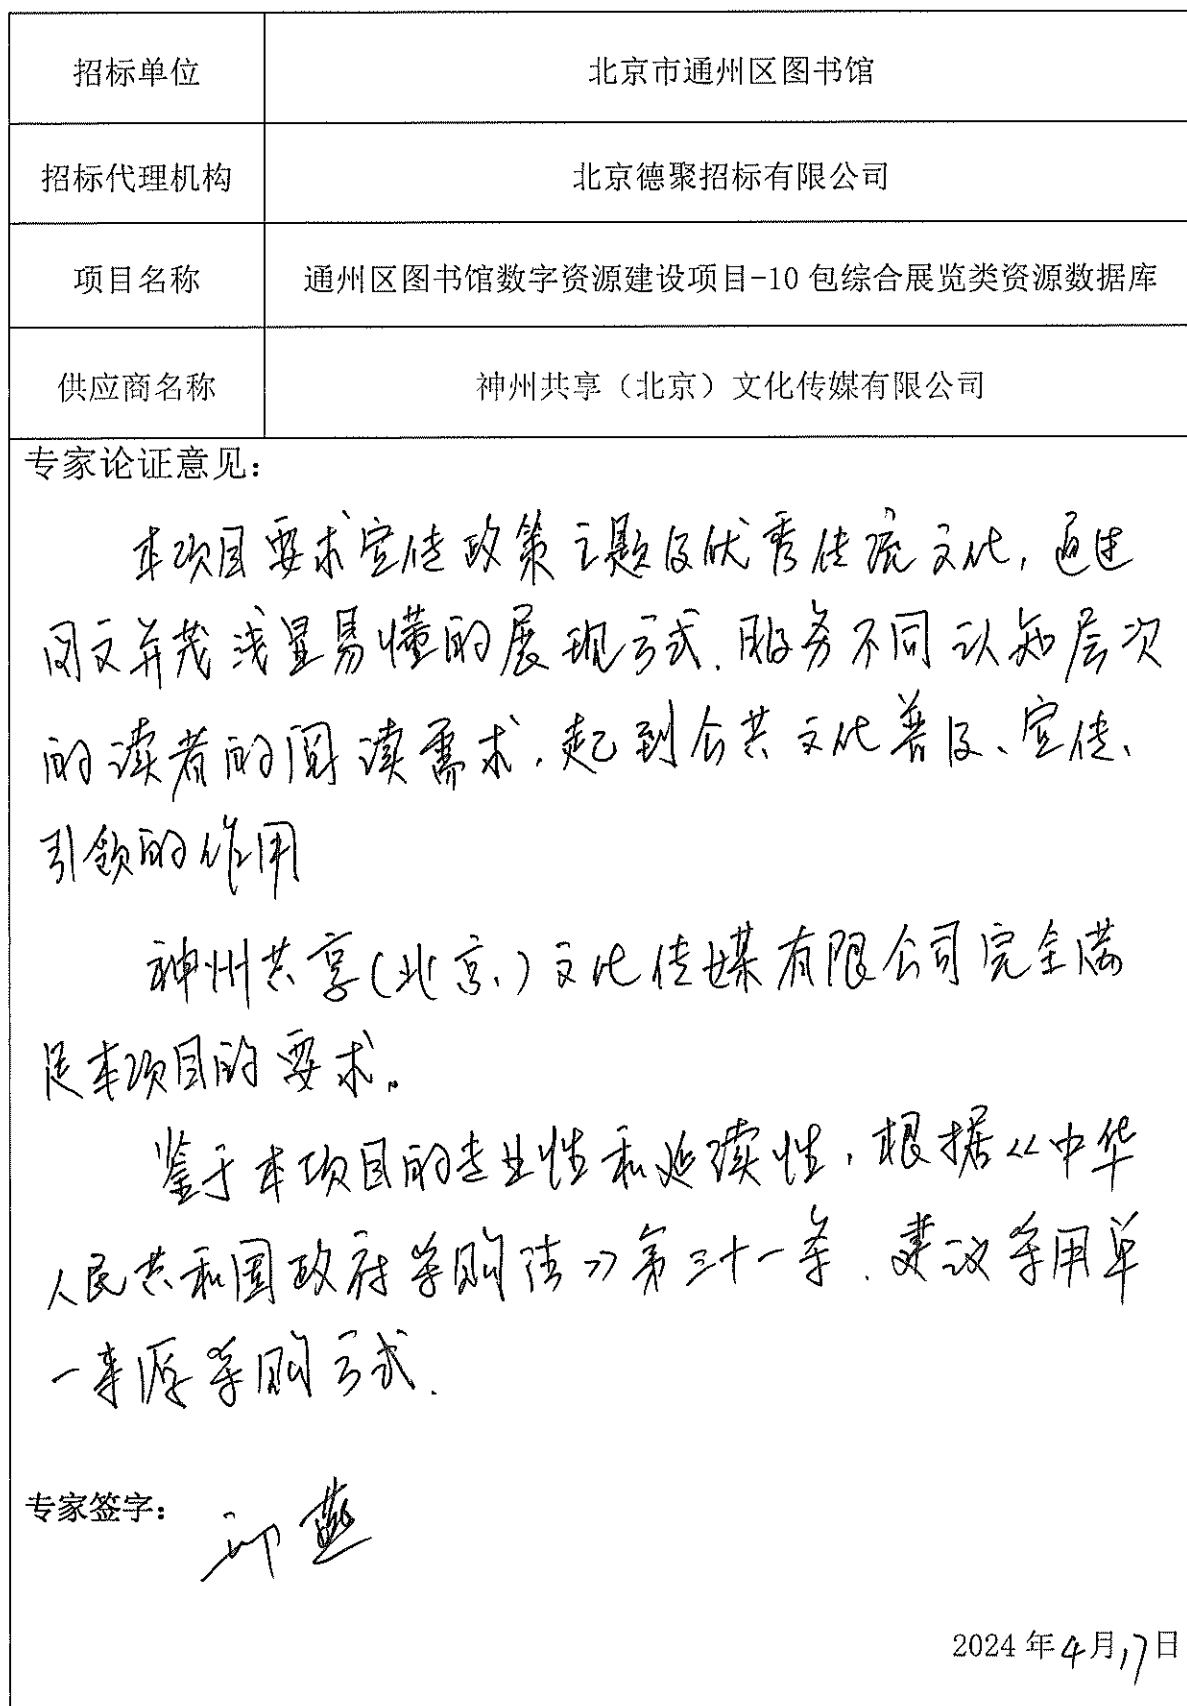 招标单位 北京市通州区图书馆
招标代理机构 北京德聚招标有限公司
项目名称 通州区图书馆数字资源建设项目-10 包综合展览类资源数据库
供应商名称 神州共享（北京）文化传媒有限公司
专家论证意见：
本项目要求宣传政策主题及优秀传统文化，通过
图文并茂浅显易懂的展现方式.服务不同认知层次
的读者的阅读需求,起到公共文化普及、宣传、
引领的作用
神州共享(北京)文化传媒有限公司完全满
足本项目的要求。
鉴于本项目的专业性和延续性,根据《中华
人民共和国政府采购法》第三十一条.建议采用单
一来源采购方式.
专家签字： 燕
2024 年4月17日